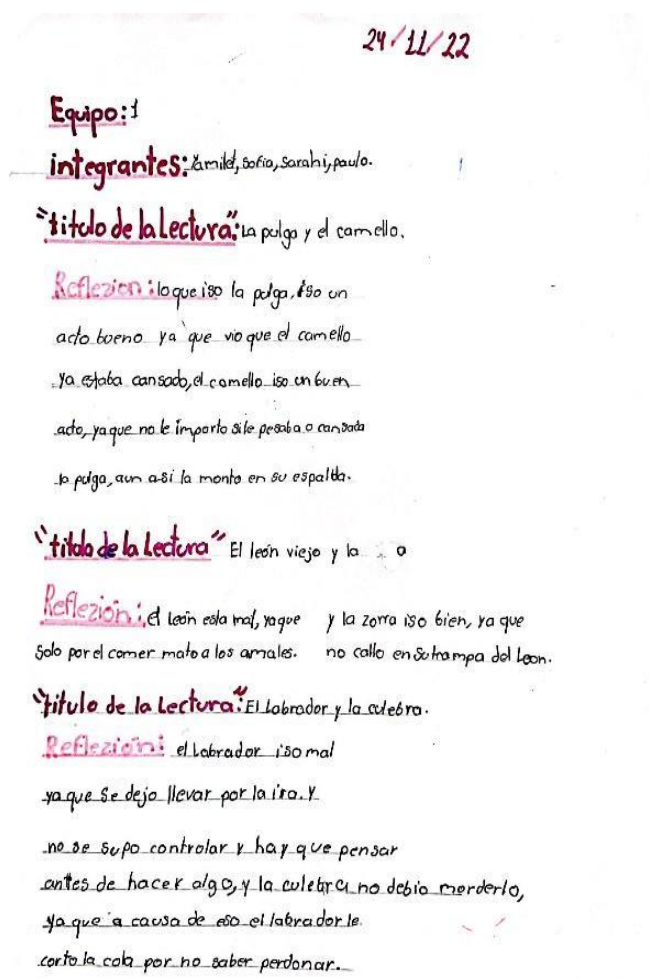 24/11/22
Equipo: 1
integrantes: Yamilet, Sofia, Sarahi, paulo.
"titulo de la Lectura": La pulga y el camello.
Reflezion: lo que iso la pulga, iso un
acto bueno ya que vio que el camello
ya estaba cansado, el camello iso un buen
acto, ya que no le importo si le pesaba o cansada
la pulga, aun a si la monto en su espalda.
"titulo de la Lectura" El león viejo y la
Reflezión: el León esta mal, ya que y la zorra iso bien, ya que
Solo por el comer mato a los amales. no callo en su trampa del Leon.
"titulo de la Lectura": El Labrador y la culebra.
Reflezión: el Labrador iso mal
ya que se dejo llevar por la ira. Y
no se supo controlar y hay que pensar
antes de hacer algo, y la culebra no debio morderlo,
ya que a causa de eso el labrador le
corto la cola por no saber perdonar.